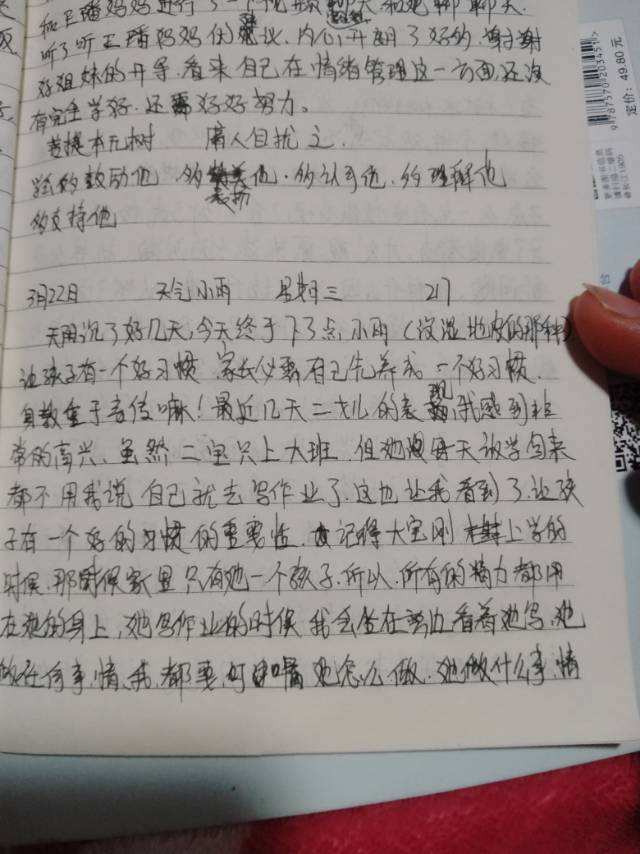 和王璠妈妈进行了一个视频聊天，和她聊聊天
听了听王璠妈妈的建议，内心开朗了好的，谢谢
好姐妹的开导，看来自己在情绪管理这一方面，还没
有完全学好，还需好好努力。
菩提本无树 庸人自扰之
的鼓励他，的表扬他，的认可他，的理解他
的支持他
3月22日 天气小雨 星期三 217
天阴沉了好几天，今天终于下了点小雨（没湿地皮的那种）
让孩子有一个好习惯，家长必要自己先养成一个好习惯，
身教重于言传嘛！最近几天二戈儿的表现，我感到非
常的高兴，虽然二宝只上大班，但她每天放学回来
都不用我说，自己就去写作业了，这也让我看到了，让孩
子有一个好的习惯的重要性，记得大宝刚上学的
时候，那时候家里只有她一个孩子，所以，所有的精力都用
在她的身上，她写作业的时候，我会坐在旁边看着她写，她
做任何事情，我都要叮嘱她怎么做，她做什么事情
定价：49.80元
9787570203451